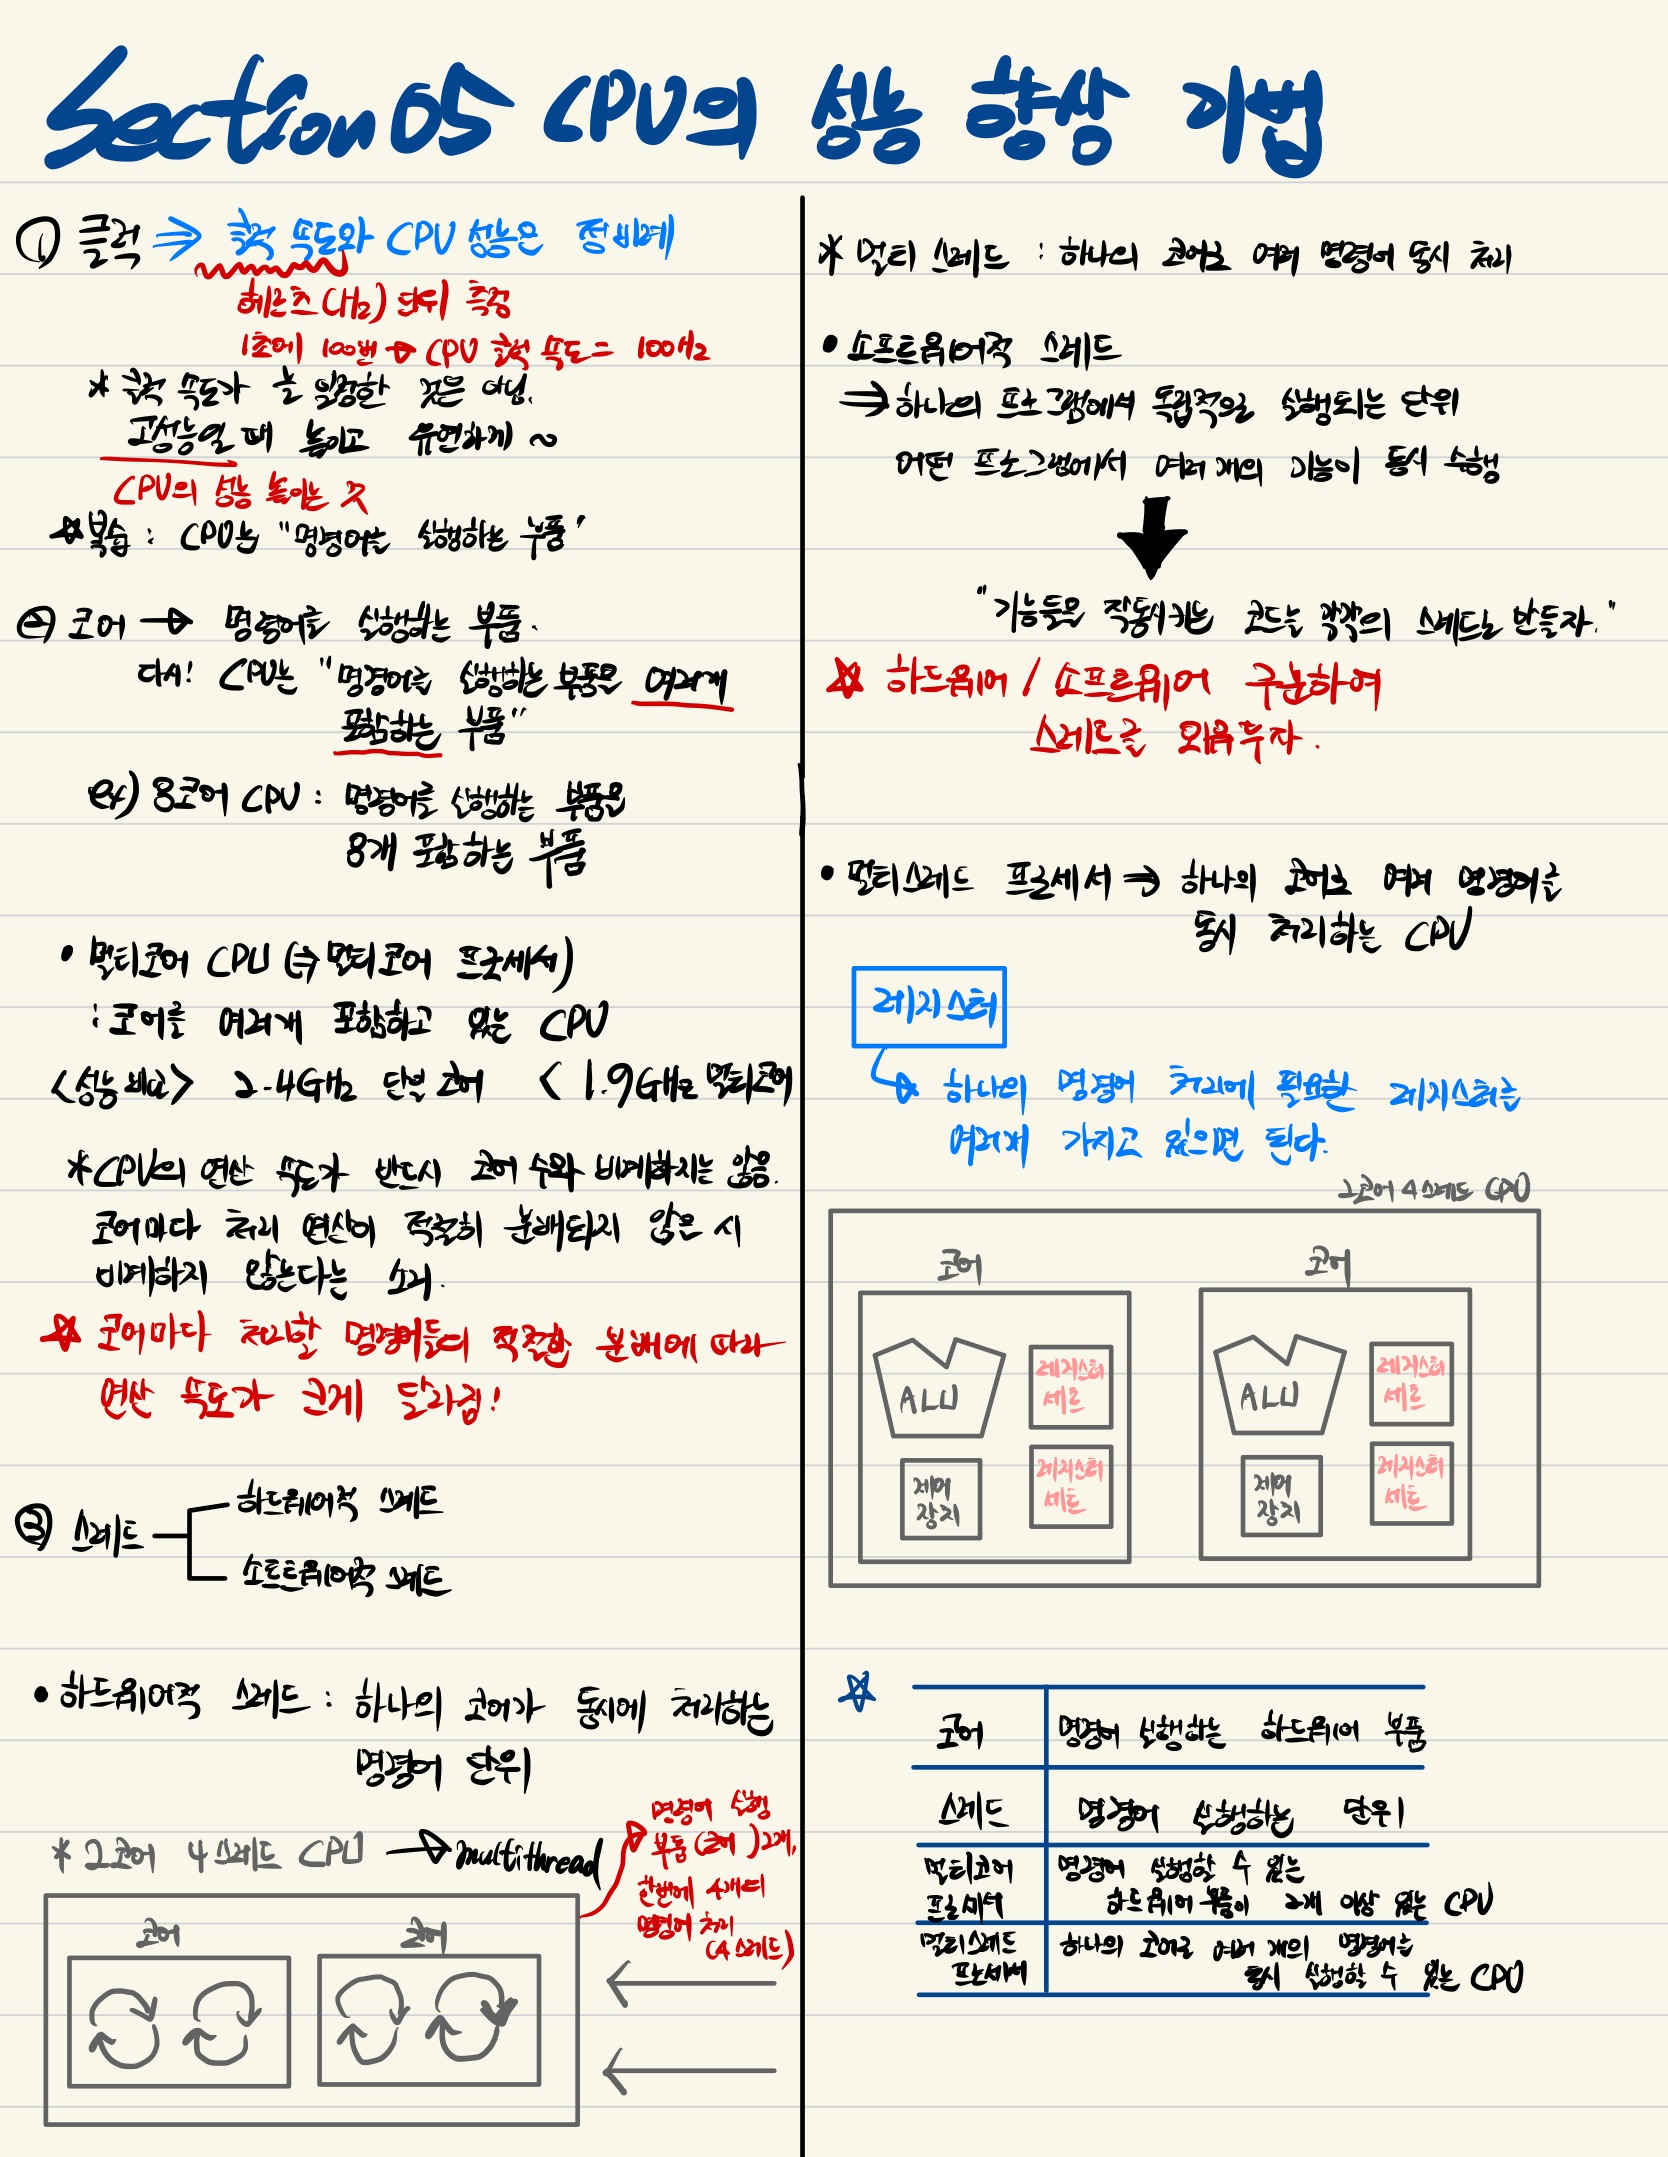 Section 05 CPU의 성능 향상 기법
① 클럭 ⇒ 클럭 속도와 CPU 성능은 정비례
헤르츠(Hz) 단위 측정
1초에 100번 → CPU 클럭 속도 = 100Hz
* 클럭 속도가 늘 일정한 것은 아님.
고성능일 때 높이고 유연하게 ~
CPU의 성능 높이는 것
☆복습 : CPU는 "명령어를 실행하는 부품"
② 코어 → 명령어를 실행하는 부품.
다시! CPU는 "명령어를 실행하는 부품을 여러개
포함하는 부품"
ex) 8코어 CPU : 명령어를 실행하는 부품을
8개 포함하는 부품
• 멀티코어 CPU (⇒멀티코어 프로세서)
: 코어를 여러개 포함하고 있는 CPU
<성능 비교> 2.4GHz 단일 코어 < 1.9GHz 멀티코어
*CPU의 연산 속도가 반드시 코어 수와 비례하지는 않음.
코어마다 처리 연산이 적절히 분배되지 않은 시
비례하지 않는다는 소리.
☆ 코어마다 처리할 명령어들의 적절한 분배에 따라
연산 속도가 크게 달라짐!
③ 스레드
하드웨어적 스레드
소프트웨어적 스레드
• 하드웨어적 스레드 : 하나의 코어가 동시에 처리하는
명령어 단위
* 2코어 4스레드 CPU → multithread
명령어 실행
부품(코어) 2개,
한번에 4개의
명령어 처리
(4스레드)
코어 코어
* 멀티 스레드 : 하나의 코어로 여러 명령어 동시 처리
• 소프트웨어적 스레드
⇒ 하나의 프로그램에서 독립적으로 실행되는 단위
어떤 프로그램에서 여러 개의 기능이 동시 수행
"기능들을 작동시키는 코드를 각각의 스레드로 만들자."
☆ 하드웨어 / 소프트웨어 구분하여
스레드를 외워두자.
• 멀티스레드 프로세서 ⇒ 하나의 코어로 여러 명령어를
동시 처리하는 CPU
레지스터
하나의 명령어 처리에 필요한 레지스터를
여러개 가지고 있으면 된다.
2코어 4스레드 CPU
코어 코어
ALU 레지스터 ALU 레지스터
세트 세트
제어 레지스터 제어 레지스터
장치 세트 장치 세트
☆
코어 명령어 실행하는 하드웨어 부품
스레드 명령어 실행하는 단위
멀티코어 명령어 실행할 수 있는
프로세서 하드웨어 부품이 2개 이상 있는 CPU
멀티스레드 하나의 코어로 여러 개의 명령어를
프로세서 동시 실행할 수 있는 CPU